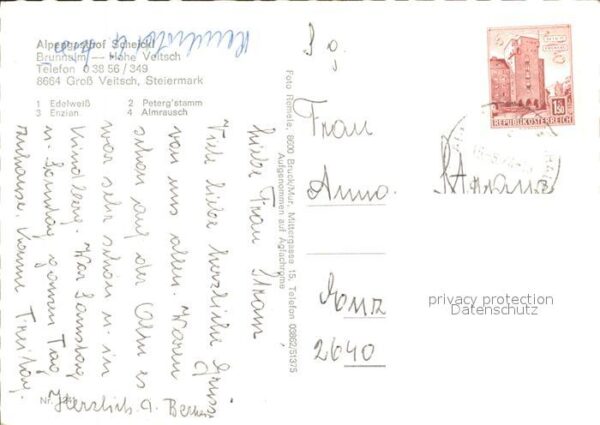 Alpengasthof Scheikl
Brunnalm — Hohe Veitsch
Telefon 0 38 56 / 349
8664 Groß Veitsch, Steiermark
1 Edelweiß 2 Peterg'stamm
3 Enzian 4 Almrausch
Liebe Frau
Viele liebe herzliche Grüße
von uns allen. Waren
schon auf der Alm es
war sehr schön u. in
Kindberg. War Samstag
u. Sonntag ganzen Tag
zuhause. Komme Freitag.
Herzlich
Nr.
Foto Remele, 8600 Bruck/Mur, Mittergasse 15, Telefon 03862/51375
Aufgenommen auf Agfachrome
Frau
Anna
2640
1.50
REPUBLIK ÖSTERREICH
privacy protection
Datenschutz